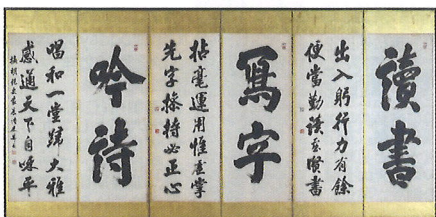 讀書
出入躬行力有餘
便當勤讀聖賢書
寫字
拈毫運用惟虛掌
先字操持必正心
吟詩
唱和一堂歸大雅
感通天下自咏平